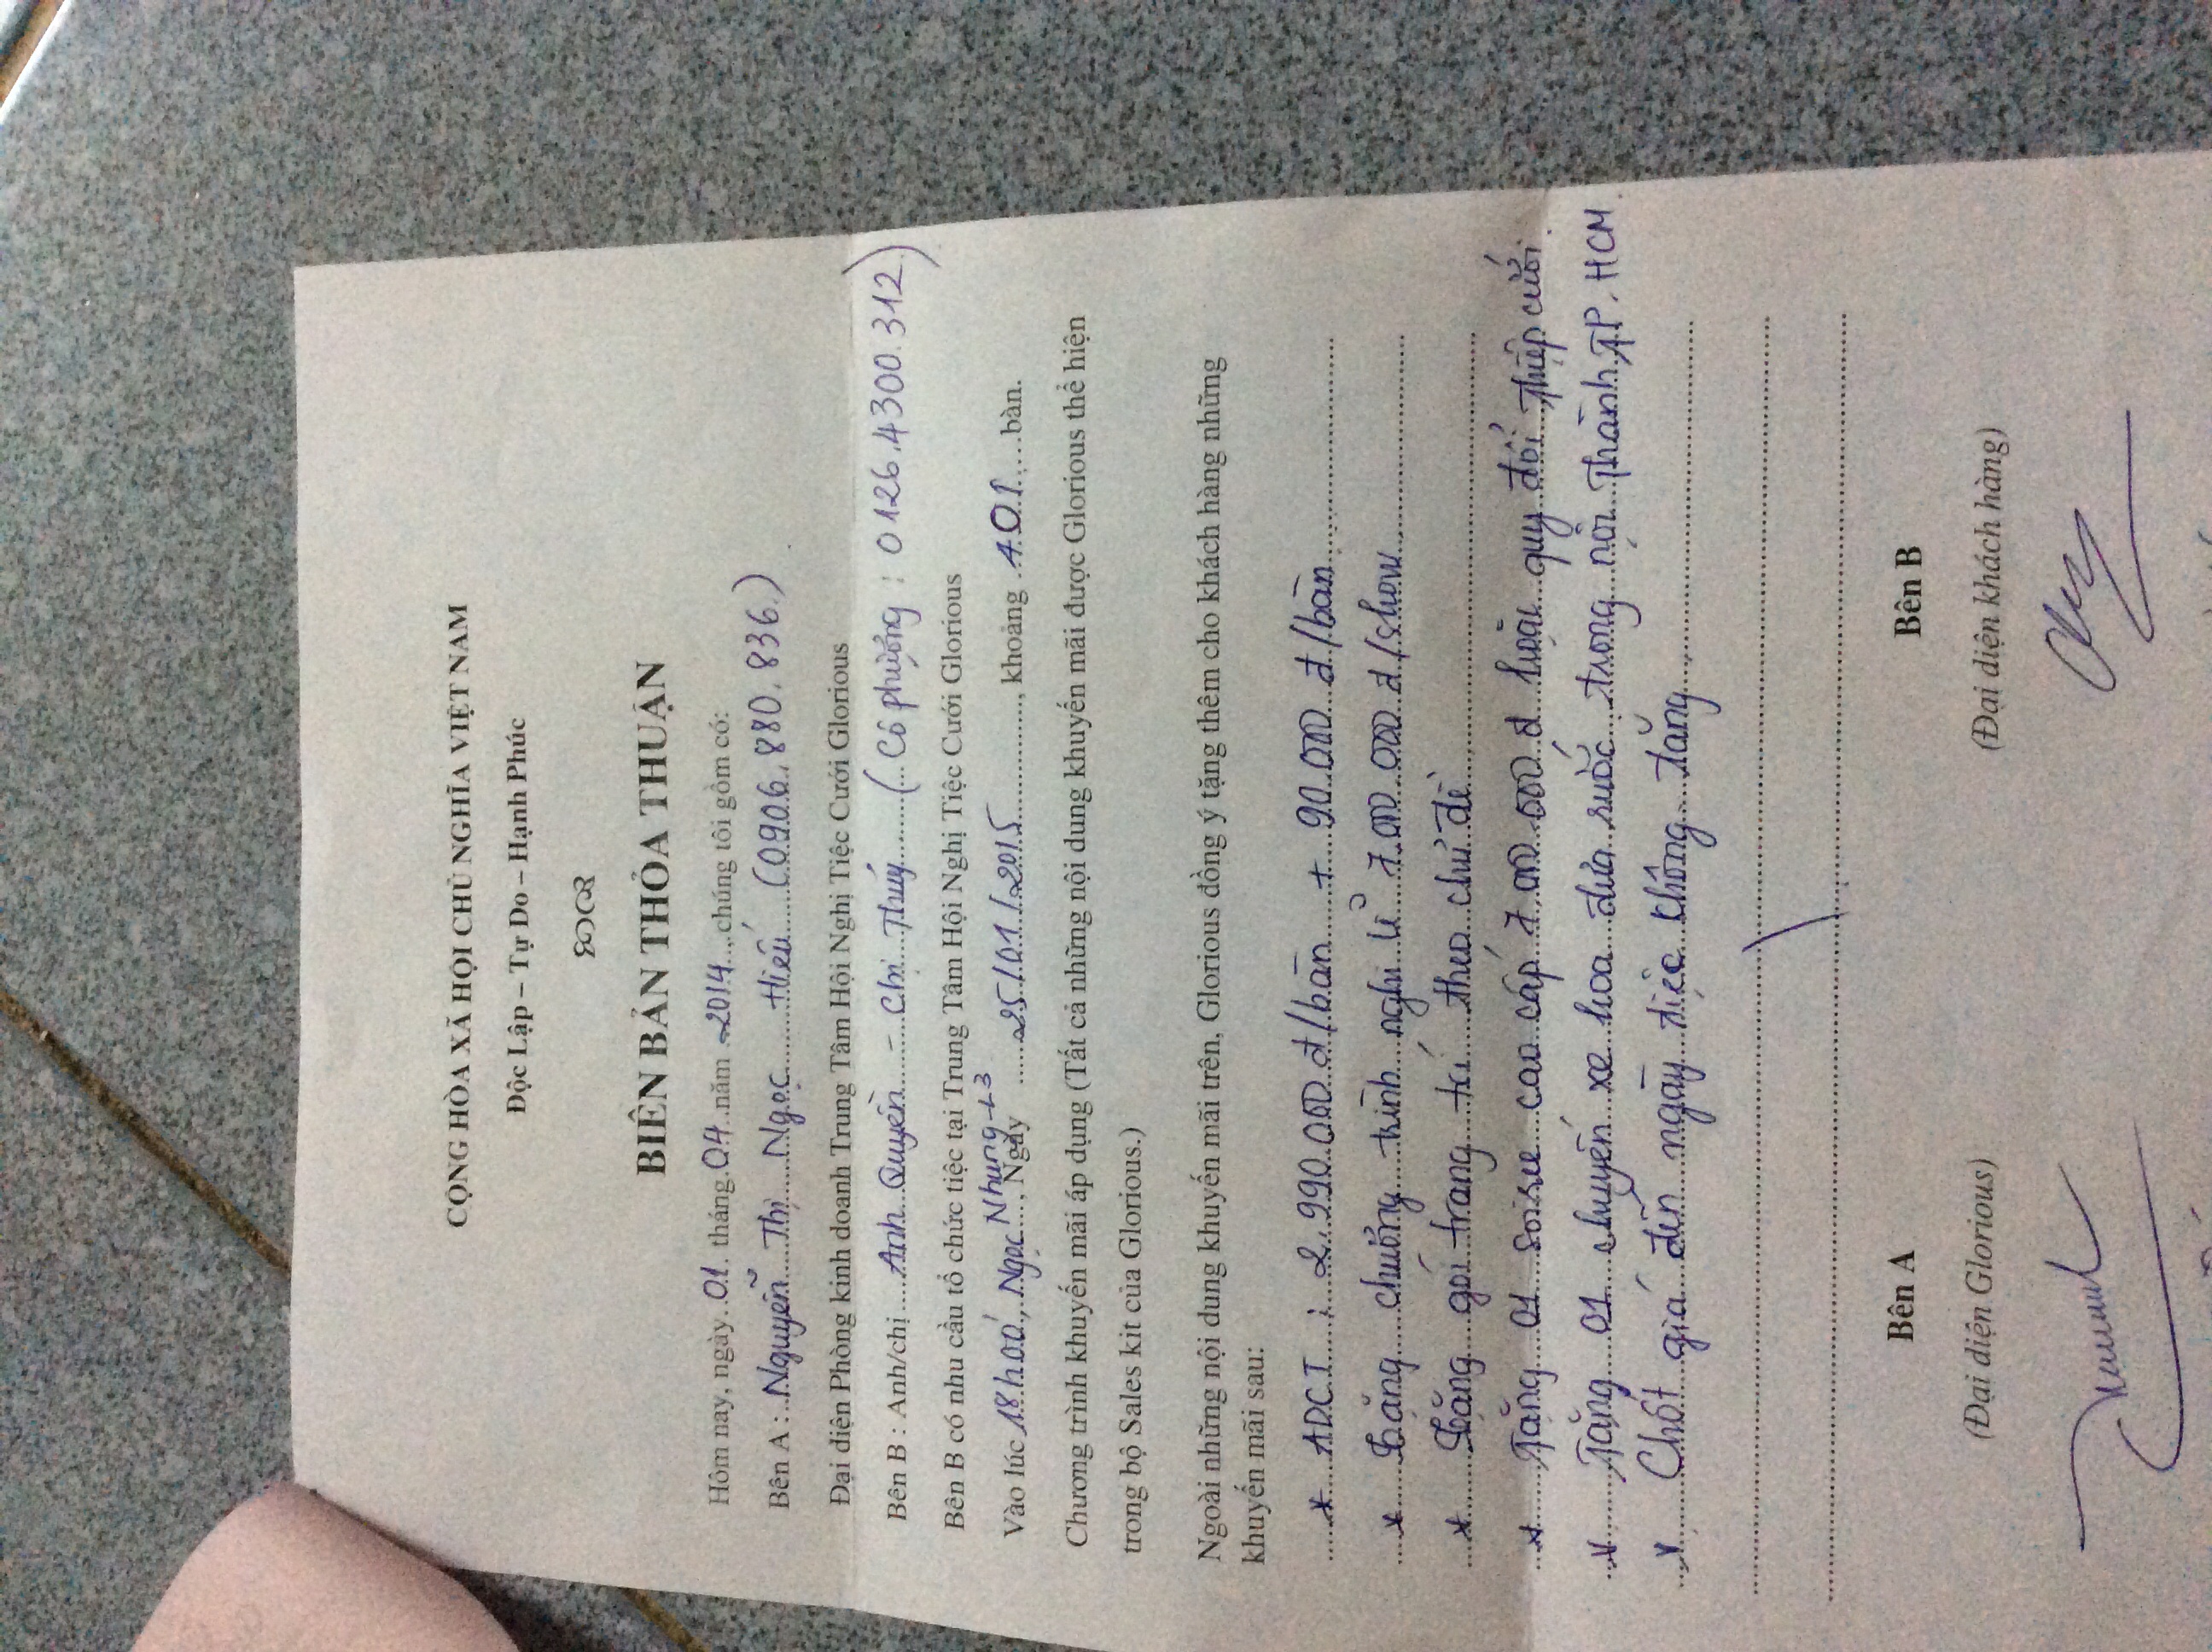 CỘNG HÒA XÃ HỘI CHỦ NGHĨA VIỆT NAM
Độc Lập – Tự Do – Hạnh Phúc
BIÊN BẢN THỎA THUẬN
Hôm nay, ngày 01 tháng 04 năm 2014, chúng tôi gồm có:
Bên A : Nguyễn Thị Ngọc Hiếu (0906.880.836)
Đại diện Phòng kinh doanh Trung Tâm Hội Nghị Tiệc Cưới Glorious
Bên B : Anh/chị Anh Quyền - Chị Thuý (Cô phượng : 0126.4300.312)
Bên B có nhu cầu tổ chức tiệc tại Trung Tâm Hội Nghị Tiệc Cưới Glorious
Vào lúc 18h00, Ngọc Nhung L3, Ngày 25/01/2015, khoảng bàn.
Chương trình khuyến mãi áp dụng (Tất cả những nội dung khuyến mãi được Glorious thể hiện
trong bộ Sales kit của Glorious.)
Ngoài những nội dung khuyến mãi trên, Glorious đồng ý tặng thêm cho khách hàng những
khuyến mãi sau:
* : 2.990.000 đ/bàn + 90.000 đ/bàn
* Tặng chương trình nghi lễ 7.000.000 đ/show
* Tặng gói trang trí theo chủ đề
* Tặng 01 soiree cao cấp 7.000.000 đ hoặc quy đổi thiệp cưới.
* Tặng 01 chuyến xe hoa đưa rước trong nội thành TP. HCM.
* Chốt giá đến ngày tiệc không tăng
Bên A
Bên B
(Đại diện Glorious)
(Đại diện khách hàng)